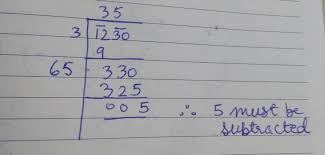 35
3 12 30
9
65 330
325
005 ∴ 5 must be
subtracted